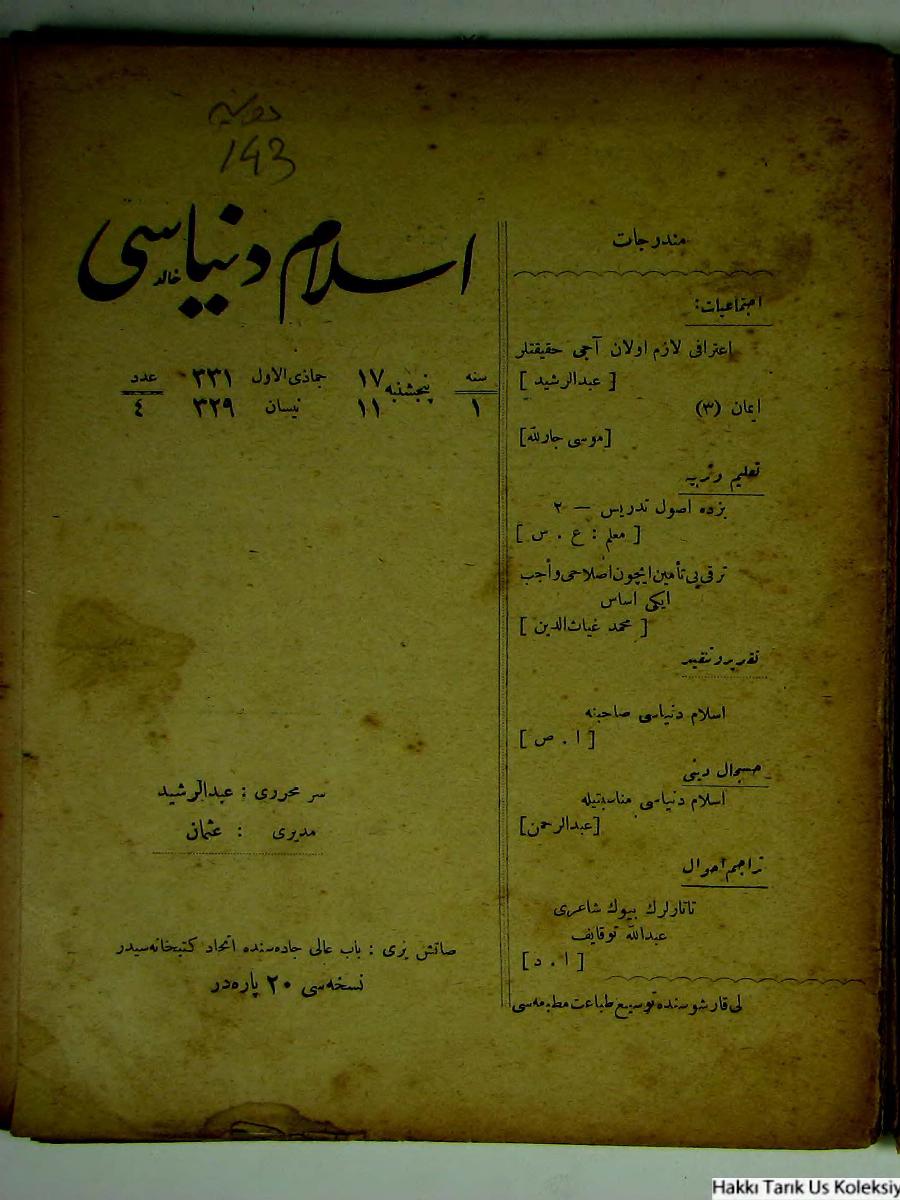 143
اسلام دنیاسی
خالد
سنه ١
پنجشنبه
١٧ جماذی‌الاول ٣٣١
١١ نیسان ٣٢٩
عدد ٤
سر محرری : عبدالرشید
مدیری : عثمان
صاتش یری : باب عالی جاده‌سنده اتحاد کتبخانه‌سیدر
نسخه‌سی ٢٠ پاره‌در
مندرجات
اجتماعیات:
اعترافی لازم اولان آجی حقیقتلر
[ عبدالرشید ]
ایمان (٣)
[موسی جارلله]
تعلیم و تربیه
بزده اصول تدریس — ٢
[ معلم : ع . ص ]
ترقی‌یی تأمین ایچون اصلاحی واجب
ایکی اساس
[ محمد غیاث‌الدین ]
تقدیر و تنقید
اسلام دنیاسی صاحبنه
[ ا . ص ]
حسبحال دینی
اسلام دنیاسی مناسبتیله
[عبدالرحمن]
تراجم احوال
تاتارلرك بیوك شاعری
عبدالله توقایف
[ ا . د ]
لی قارشوسنده توسیع طباعت مطبعه‌سی
Hakkı Tarık Us Koleksiy